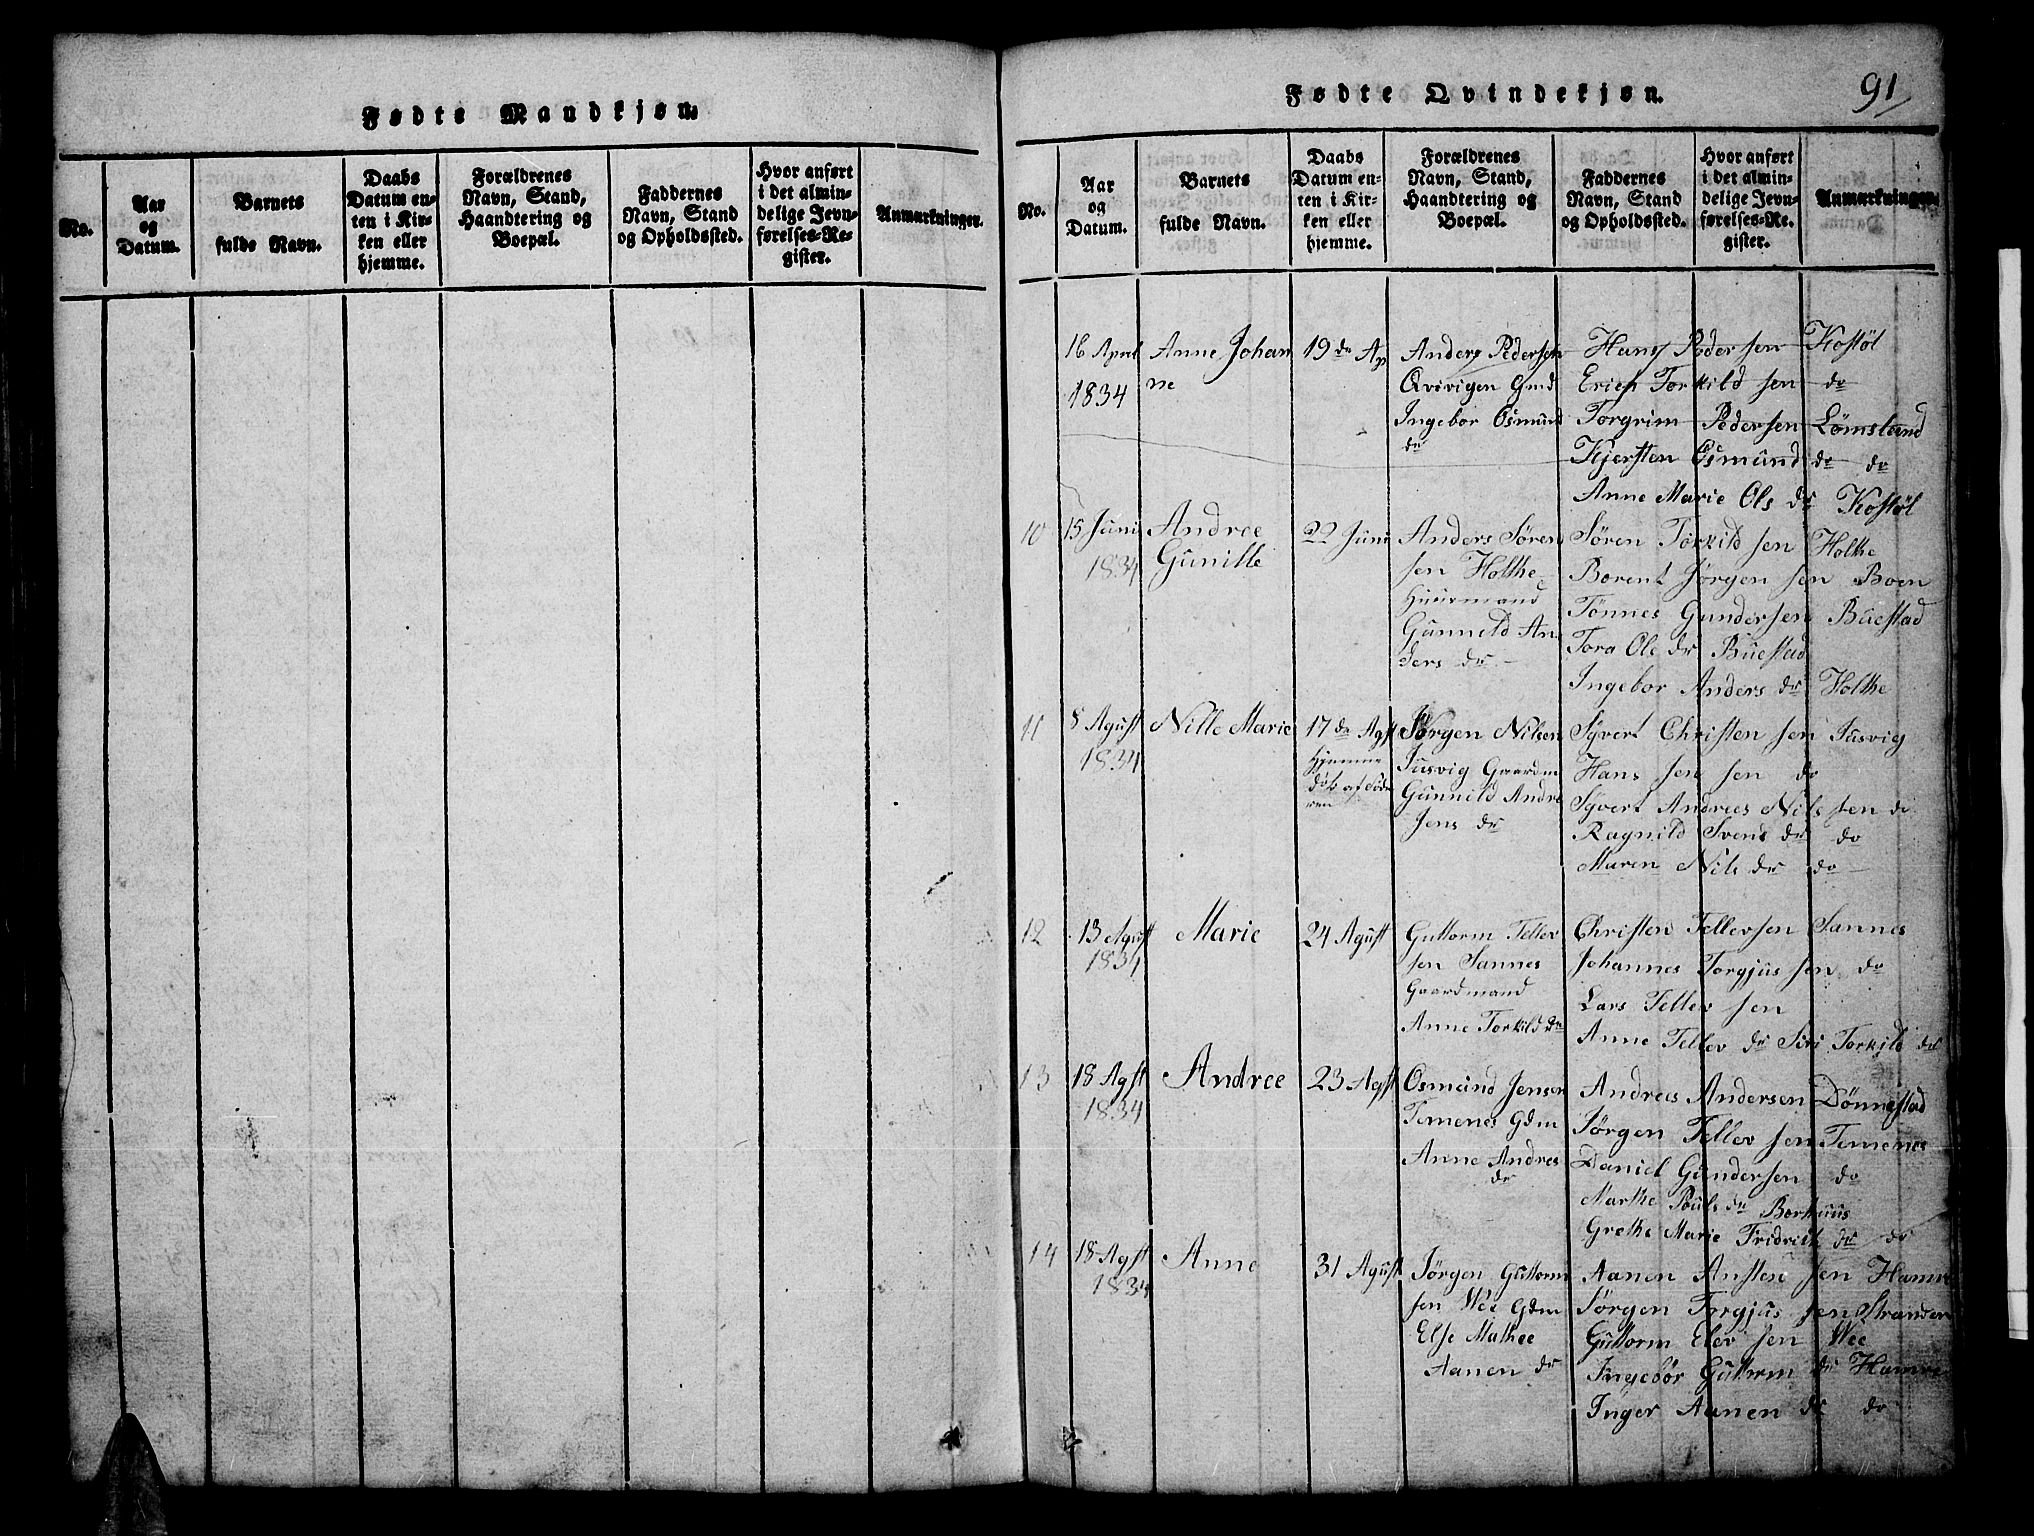 Fødte Mandkjøn.
No.
Aar
og
Datum.
Barnets
fulde Navn.
Daabs
Datum en-
ten i Kir-
ken eller
hjemme.
Forældrenes
Navn, Stand,
Haandtering og
Boepæl.
Faddernes
Navn, Stand
og Opholdssted.
Hvor anført
i det almin-
delige Jevn-
førelses-Re-
gister.
Anmærkninger.
Fødte Qvindekjøn.
91
No.
Aar
og
Datum.
Barnets
fulde Navn.
Daabs
Datum en-
ten i Kir-
ken eller
hjemme.
Forældrenes
Navn, Stand,
Haandtering og
Boepæl.
Faddernes
Navn, Stand
og Opholdssted.
Hvor anført
i det almin-
delige Jevn-
førelses-Re-
gister.
Anmærkninger.
16 April
1834
Anne Johan
ne
19de Ap
Anders Pedersen
Qvivigen Gmd
Ingebor Osmund
dr
Hans Pedersen Kostøl
Erich Torkild sen do
Torgrim Pedersen Lømsland
Kjersten Osmund dr do
Anne Marie Ols dr Kostøl
10
15 Juni
1834
Andree
Gunille
22 Juni
Anders Søren
sen Holthe
Huusmand
Gunneld An
ders dr
Søren Torkild sen Holthe
Borent Jørgen sen Boen
Tønnes Gundersen Büestad
Tora Ole dr Büestad
Ingebor Anders dr Holthe
11
8 Agust
1834
Nille Marie
17de Agst
Hjemme
døb af
Jørgen Nilsen
Jusvig Gaardm
Gunnild Andre
Jens dr
Syvert Christen sen Jusvig
Hans Jen sen do
Syvert Andrees Nils sen do
Ragnild Svens dr do
Maren Nils dr do
12
13 Agust
1834
Marie
24 Agust
Guttorm Tellev
sen Sannes
Gaardmand
Anne Torkild dr
Christen Tellevsen Sannes
Johannes Torgjus sen do
Lars Tellev sen
Anne Tellev dr Siri Torkild dr
13
18 Agst
1834
Andree
23 Agst
Osmund Jensen
Temenes Gdm
Anne Andres
dr
Andreas Andersen Dønnestad
Jørgen Tellev sen Temenes
Daniel Gundersen do
Marthe Pouls dr Borkhuus
Grethe Marie Fridrich dr do
14
18 Agst
1834
Anne
31 Agust
Jørgen Guttorm
sen Wee Gdm
Else Mathee
Aanen dr
Aanen Ansten sen Hamre
Jørgen Torgjus sen Stranden
Guttorm Elev sen Wee
Ingebør Guttorm dr Hamre
Inger Aanen dr do